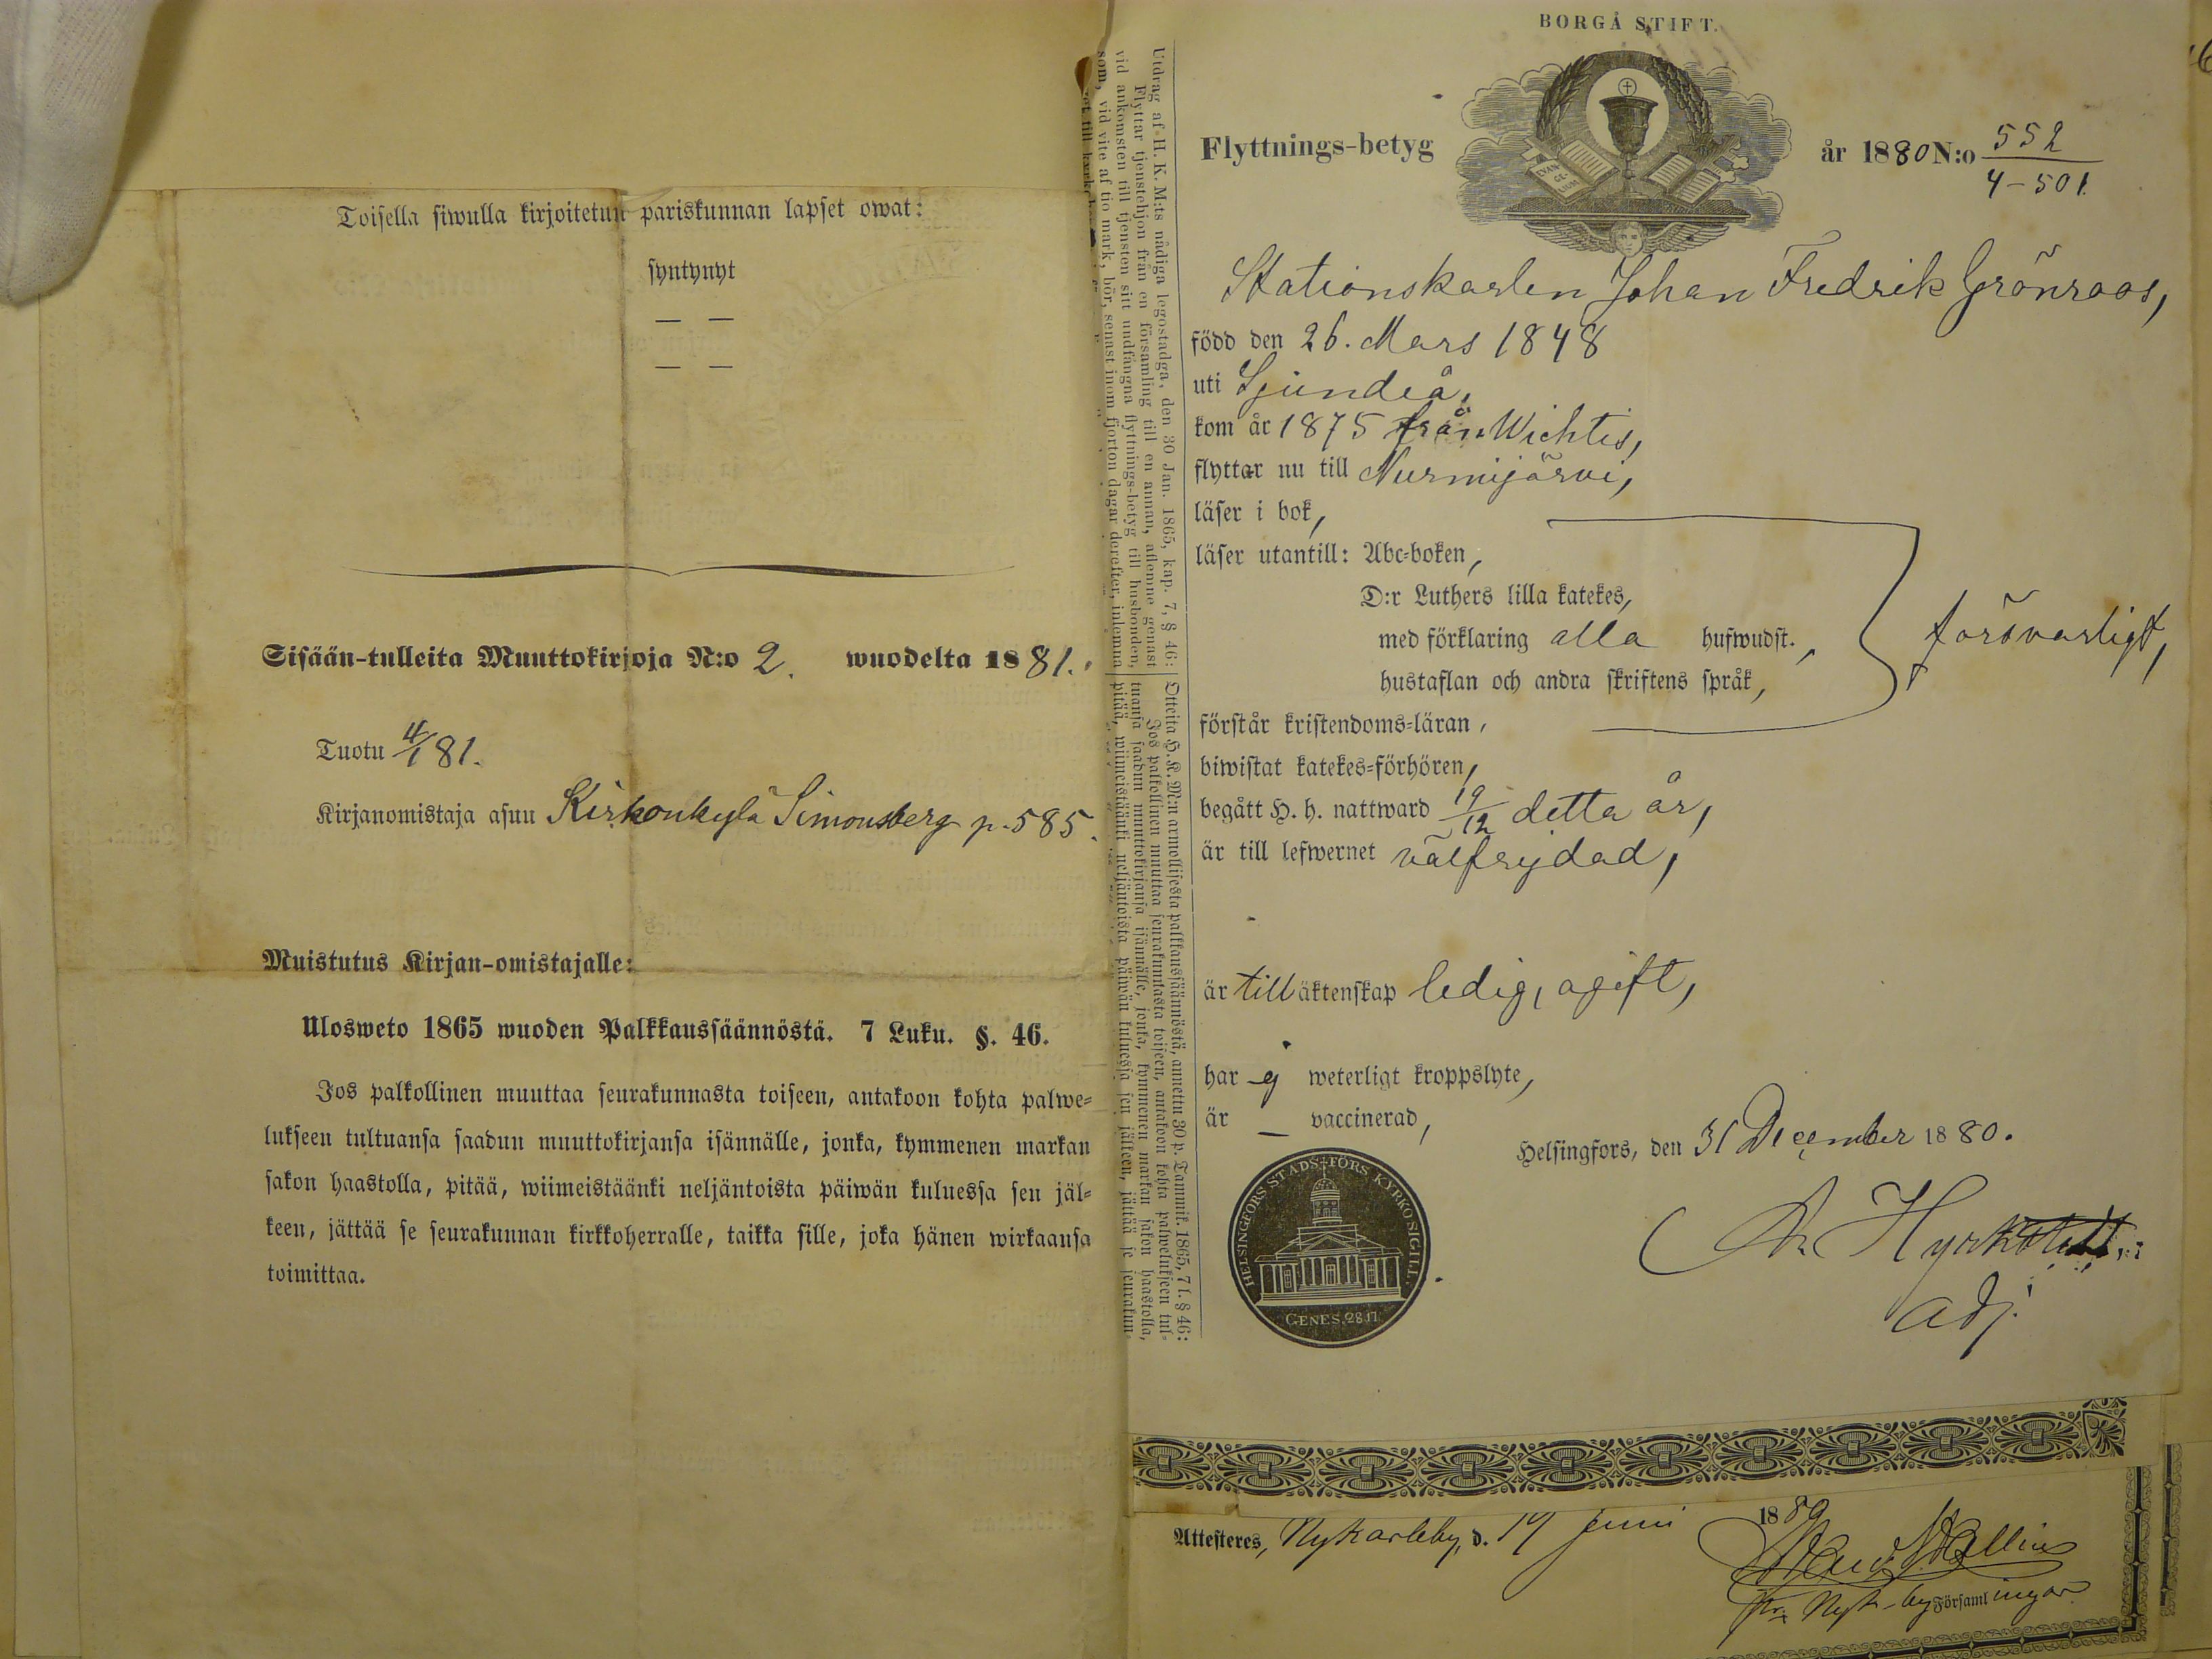 Toisella siwulla kirjoitetun pariskunnan lapset owat:
syntynyt
— —
— —
Sisään-tulleita Muuttokirjoja N:o 2. wuodelta 1881.
Tuotu 4/1 81.
Kirjanomistaja asuu Kirkonkylä Simonsberg p. 585.
Muistutus Kirjan-omistajalle:
Ulosweto 1865 wuoden Palkkaussäännöstä. 7 Luku. §. 46.
Jos palkollinen muuttaa seurakunnasta toiseen, antakoon kohta palwe=
lukseen tultuansa saadun muuttokirjansa isännälle, jonka, kymmenen markan
sakon haastolla, pitää, wiimeistäänki neljäntoista päiwän kuluessa sen jäl=
keen, jättää se seurakunnan kirkkoherralle, taikka sille, joka hänen wirkaansa
toimittaa.
Utdrag af H. K. M:ts nådiga legostadga, den 30 Jan. 1865, kap. 7, § 46:
Flyttar tjenstehjon från en församling till en annan, aflemne genast
vid ankomsten till tjensten sitt undfångna flyttnings-betyg till husbonden,
som, vid vite af tio mark, bör, senast inom fjorton dagar derefter, inlemna
Otteita H.K.M:n armollisesta palkkaussäännöstä, annettu 30 p. Tammik. 1865, 7 l. § 46:
Jos palkollinen muuttaa seurakunnasta toiseen, antakoon kohta palwelukseen tul=
tuansa saadun muuttokirjansa isännälle, jonka, kymmenen markan sakon haastolla,
pitää, wiimeistäänki neljäntoista päiwän kuluessa sen jälkeen, jättää se seurakun=
BORGÅ STIFT.
Flyttnings-betyg
EVAN-
GE-
LIUM
år 1880 N:o 552
4-501.
Stationskarlen Johan Fredrik Grönroos,
född den 26. Mars 1848
uti Sjundeå,
kom år 1875 från Wichtis,
flyttar nu till Nurmijärvi,
läser i bok,
läser utantill: Abc=boken,
D:r Luthers lilla katekes,
med förklaring alla hufwudst.,
försvarligt,
hustaflan och andra skriftens språk,
förstår kristendoms=läran,
biwistat katekes=förhören,
begått H. h. nattward 19/12 detta år,
är till lefwernet välfrejdad,
är till äktenskap ledig, ogift,
har ej weterligt kroppslyte,
är — vaccinerad,
Helsingfors, den 31 December 1880.
HELSINGFORS STADS-FÖRS KYRKO SIGILL.
GENES. 28.17
adj.
Attesteres, Nykarleby, d. 19 Juni 1880
Församlingar